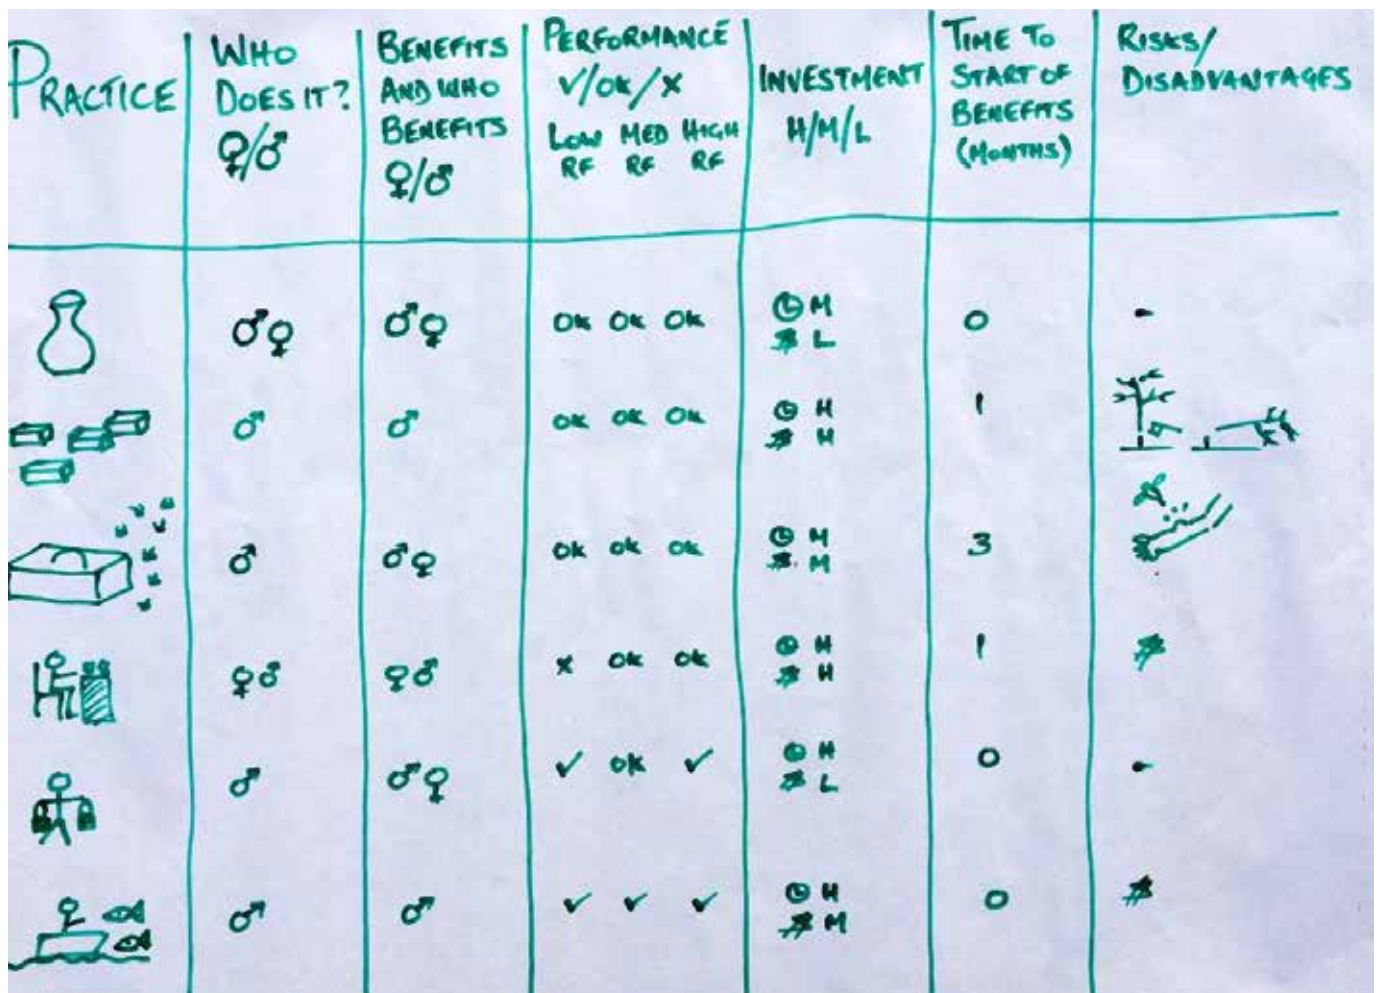 PRACTICE
WHO
DOES IT?
♀/♂
BENEFITS
AND WHO
BENEFITS
♀/♂
PERFORMANCE
✓/OK/X
LOW MED HIGH
RF RF RF
INVESTMENT
H/M/L
TIME TO
START OF
BENEFITS
(MONTHS)
RISKS/
DISADVANTAGES
♂♀
♂♀
OK OK OK
M
$ L
0
-
♂
♂
OK OK OK
H
$ H
1
♂
♂♀
OK OK OK
M
$ M
3
♀♂
♀♂
X OK OK
H
$ H
1
$
♂
♂♀
✓ OK ✓
H
$ L
0
-
♂
♂
✓ ✓ ✓
H
$ M
0
$